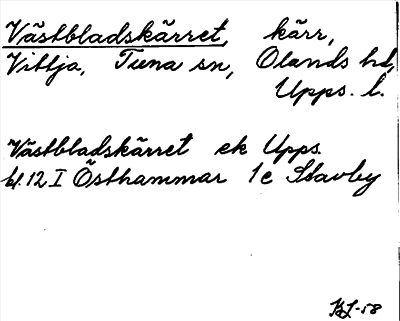 Västbladskärret, kärr,
Vittja, Tuna sn, Olands hd,
Upps. l.
Västbladskärret ek Upps.
bl. 12 I Östhammar 1e Stavby
KL-58